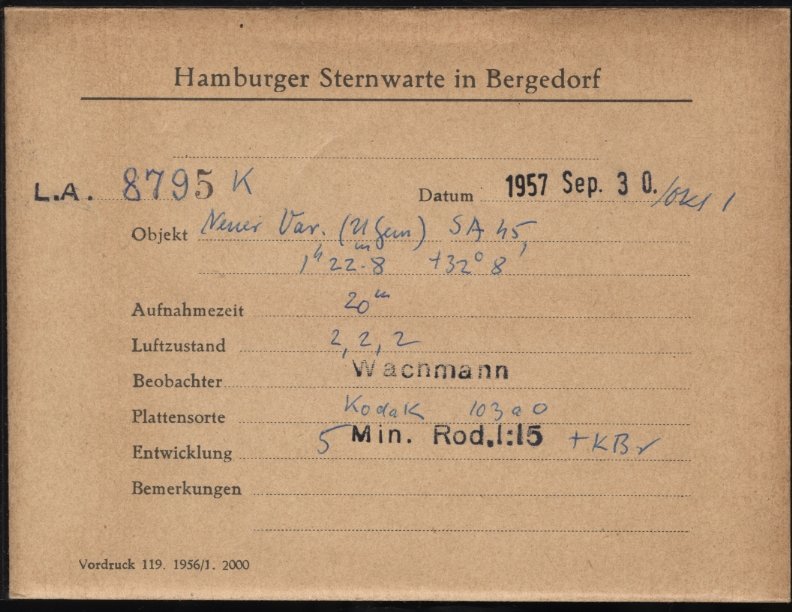 Hamburger Sternwarte in Bergedorf
L.A. 8795 K
Datum 1957 Sep. 30. /Okt 1
Objekt Neuer Var. (U Gem) SA 45,
1ʰ 22ᵐ.8 +32° 8'
Aufnahmezeit 20ᵐ
Luftzustand 2, 2, 2
Beobachter Wachmann
Plattensorte Kodak 103a0
Entwicklung 5 Min. Rod. 1:15 + KBr
Bemerkungen
Vordruck 119. 1956/1. 2000